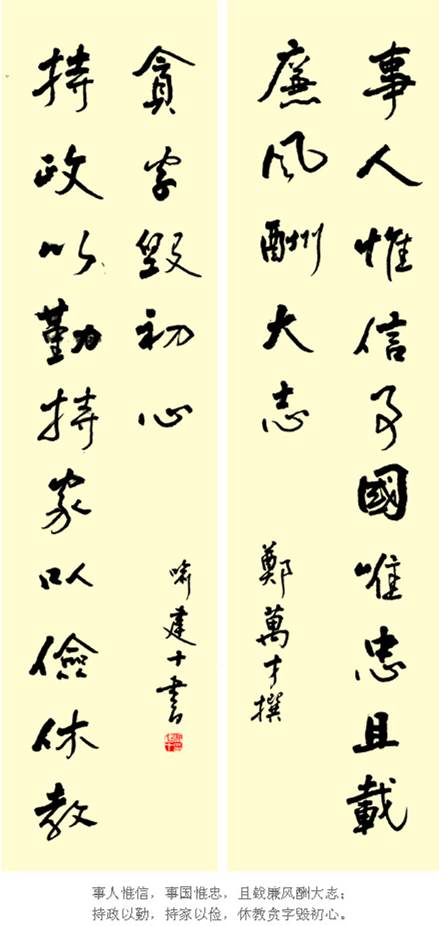 事人惟信事國唯忠且載
廉风酬大志
鄭萬才撰
持政以勤持家以儉休教
貪字毀初心
喻建十書
事人惟信，事国惟忠，且载廉风酬大志；
持政以勤，持家以俭，休教贪字毁初心。